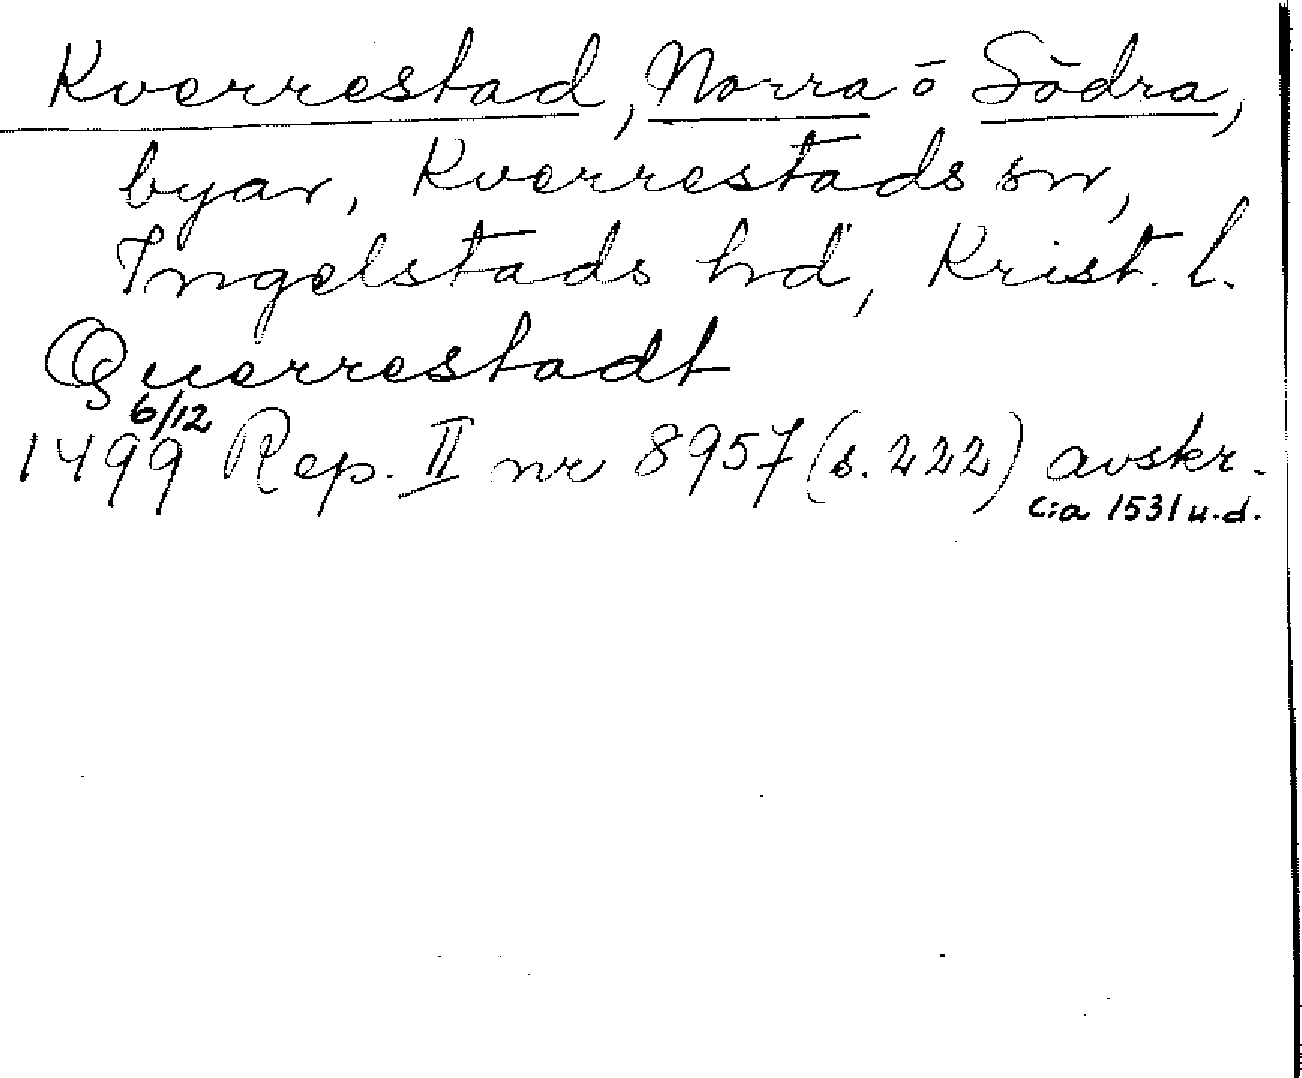 Kverrestad, Norra o Södra,
byar, Kverrestads sn,
Ingelstads hd, Krist. l.
Querrestadt
6/12
1499 Rep. II nr 8957 (s. 222) avskr.
c:a 1531 u.d.